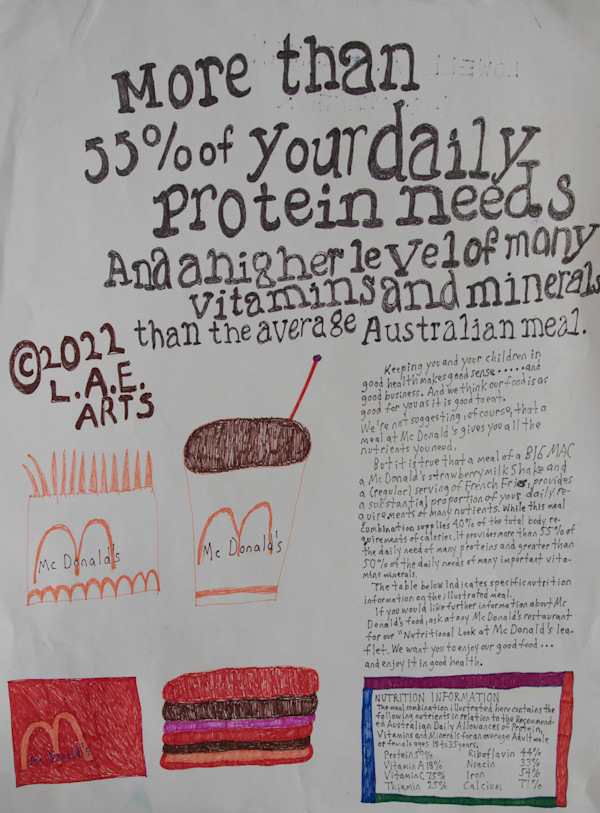 More than
55% of your daily
protein needs
And a higher level of many
vitamins and minerals
than the average Australian meal.
©2022
L.A.E.
ARTS
Mc Donald's
Mc Donald's
Mc Donald's
Keeping you and your children in
good health makes good sense.....and
good business. And we think our food is as
good for you as it is good to eat.
We're not suggesting, of course, that a
meal at Mc Donald's gives you all the
nutrients you need.
But it is true that a meal of a BIG MAC
a Mc Donald's strawberry milk Shake and
a (regular) serving of French Fries, provides
a substantial proportion of your daily re-
quirements of many nutients. While this meal
combination supplies 40% of the total body re-
quirements of calories. It provides more than 55% of
the daily need of many proteins and greater than
50% of the daily needs of many important vita-
mins minerals.
The table below indicates specific nutrition
information on the illustrated meal.
If you would like further information about Mc
Donald's food, ask at any Mc Donald's restaurant
for our "Nutritional Look at Mc Donald's lea-
flet. We want you to enjoy our good food...
and enjoy it in good health.
NUTRITION INFORMATION
The meal combination illustrated here contains the
following nutrients in relation to the Recommend-
ed Australian Daily Allowances of Protein,
Vitamins and Minerals for an average Adult male
or female ages 18 to 35 years.
Protein Riboflavin 44%
Vitamin A 18% Niacin 33%
Vitamin C 75% Iron 54%
Thiamin 25% Calcium 77%